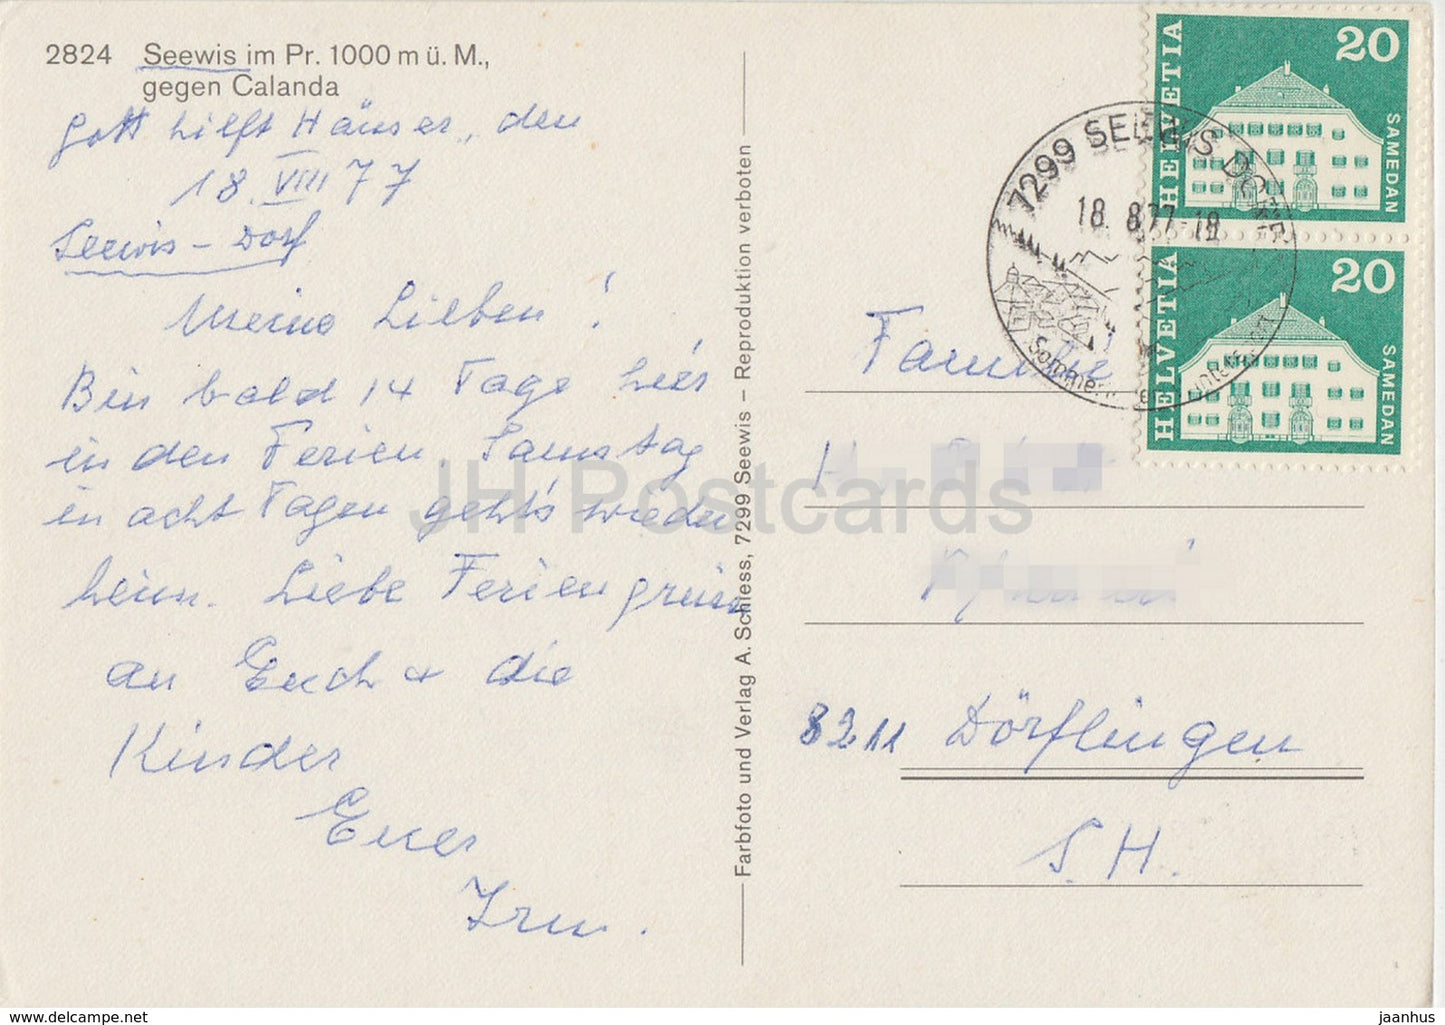 2824 Seewis im Pr. 1000 m ü. M.,
gegen Calanda
Gott hilft Häuser, den
18. VIII 77
Seewis - Dorf
Meine Lieben !
Bin bald 14 Tage hier
in den Ferien. Samstag
in acht Tagen geht's wieder
heim. Liebe Feriengrüsse
an Euch + die
Kinder
Euer
Irm.
Farbfoto und Verlag A. Schiess, 7299 Seewis – Reproduktion verboten
HELVETIA 20 SAMEDAN
HELVETIA 20 SAMEDAN
7299 SEEWIS DORF
18. 8.77-19
Familie
H
8211 Dörflingen
S.H.
JH Postcards
www.hippostcard.com
jaanhus